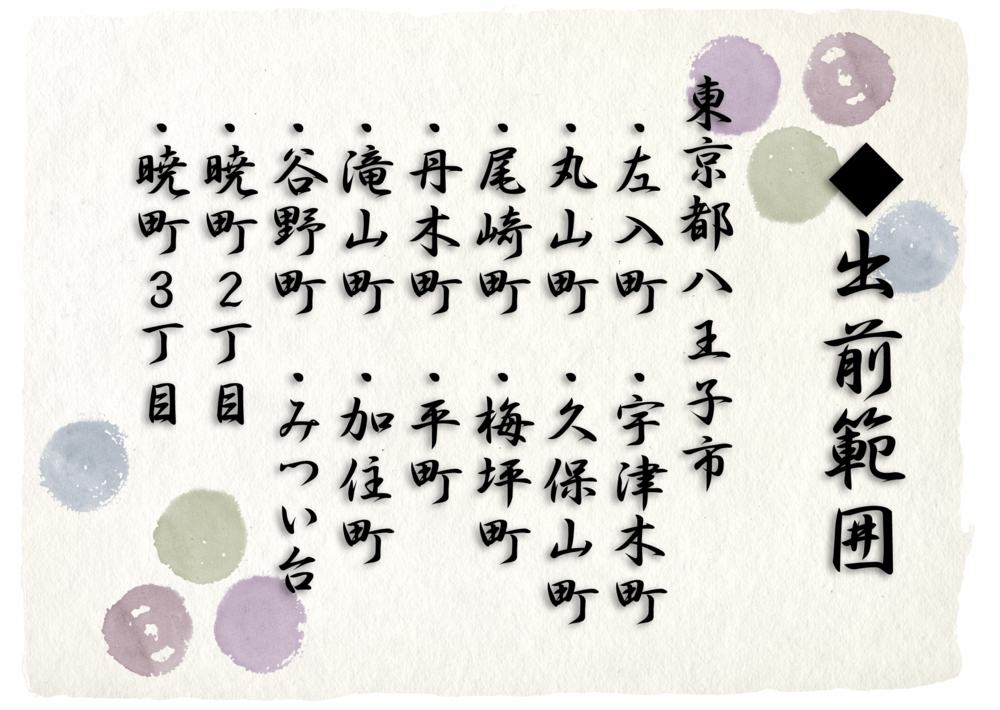 ◆出前範囲
東京都八王子市
・左入町
・宇津木町
・丸山町
・久保山町
・尾崎町
・梅坪町
・丹木町
・平町
・滝山町
・加住町
・谷野町
・みつい台
・暁町2丁目
・暁町3丁目